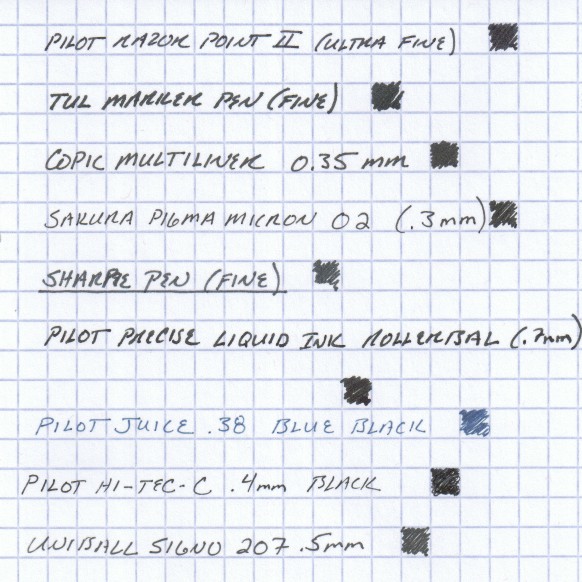 PILOT RAZOR POINT II (ULTRA FINE)
TUL MARKER PEN (FINE)
COPIC MULTILINER 0.35 mm
SAKURA PIGMA MICRON 02 (.3mm)
SHARPIE PEN (FINE)
PILOT PRECISE LIQUID INK ROLLERBAL (.7mm)
PILOT JUICE .38 BLUE BLACK
PILOT HI-TEC-C .4mm BLACK
UNIBALL SIGNO 207 .5mm